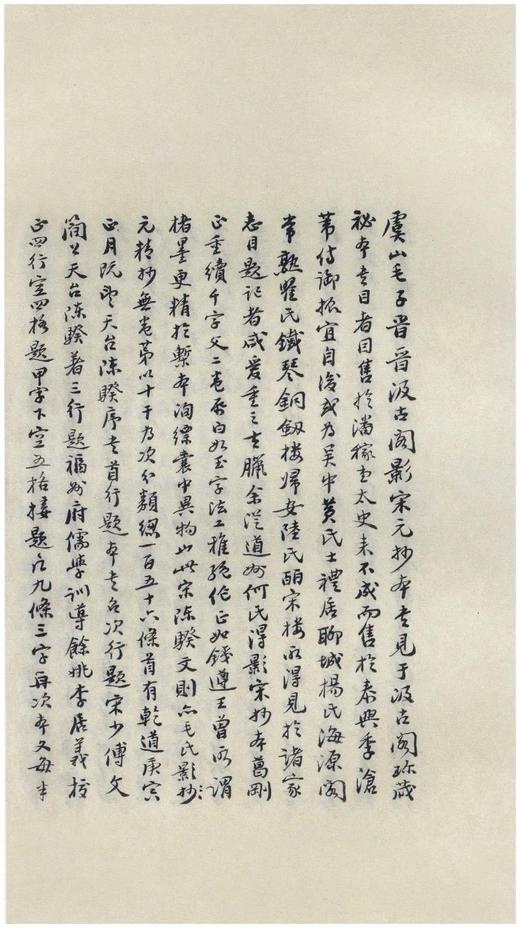 虞山毛子晉晉汲古閣影宋元抄本書見于汲古閣珍藏
祕本書目者因售於潘稼堂太史未不成而售於泰興季滄
葦侍御振宜自後或為吳中黃氏士禮居聊城楊氏海源閣
常熟瞿氏鐵琴銅劍樓歸安陸氏皕宋樓所得見於諸家
志目題記者咸愛重之去臘余從道州何氏得影宋抄本葛剛
正重續千字文二卷紙白如玉字法工雅絕倫正如錢遵王曾所謂
楮墨更精於槧本洵縹囊中異物也此宋陳騤文則六毛氏影抄
元精抄無卷第以十干為次分類總一百五十六條首有乾道庚寅
正月既望天台陳騤序書首行題本書名次行題宋少傅文
簡公天台陳騤著三行題福州府儒學訓導餘姚李居義校
正四行空四格題甲字下空五格接題名九條三字再次本文每半